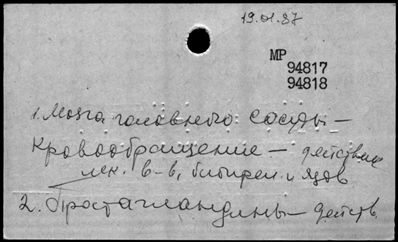 19.01.87
МР
94817
94818
1. Мозга головного сосуды –
Кровообращение – действие
лек. в-в, биопреп. и ядов
2. Простагландины – действ.